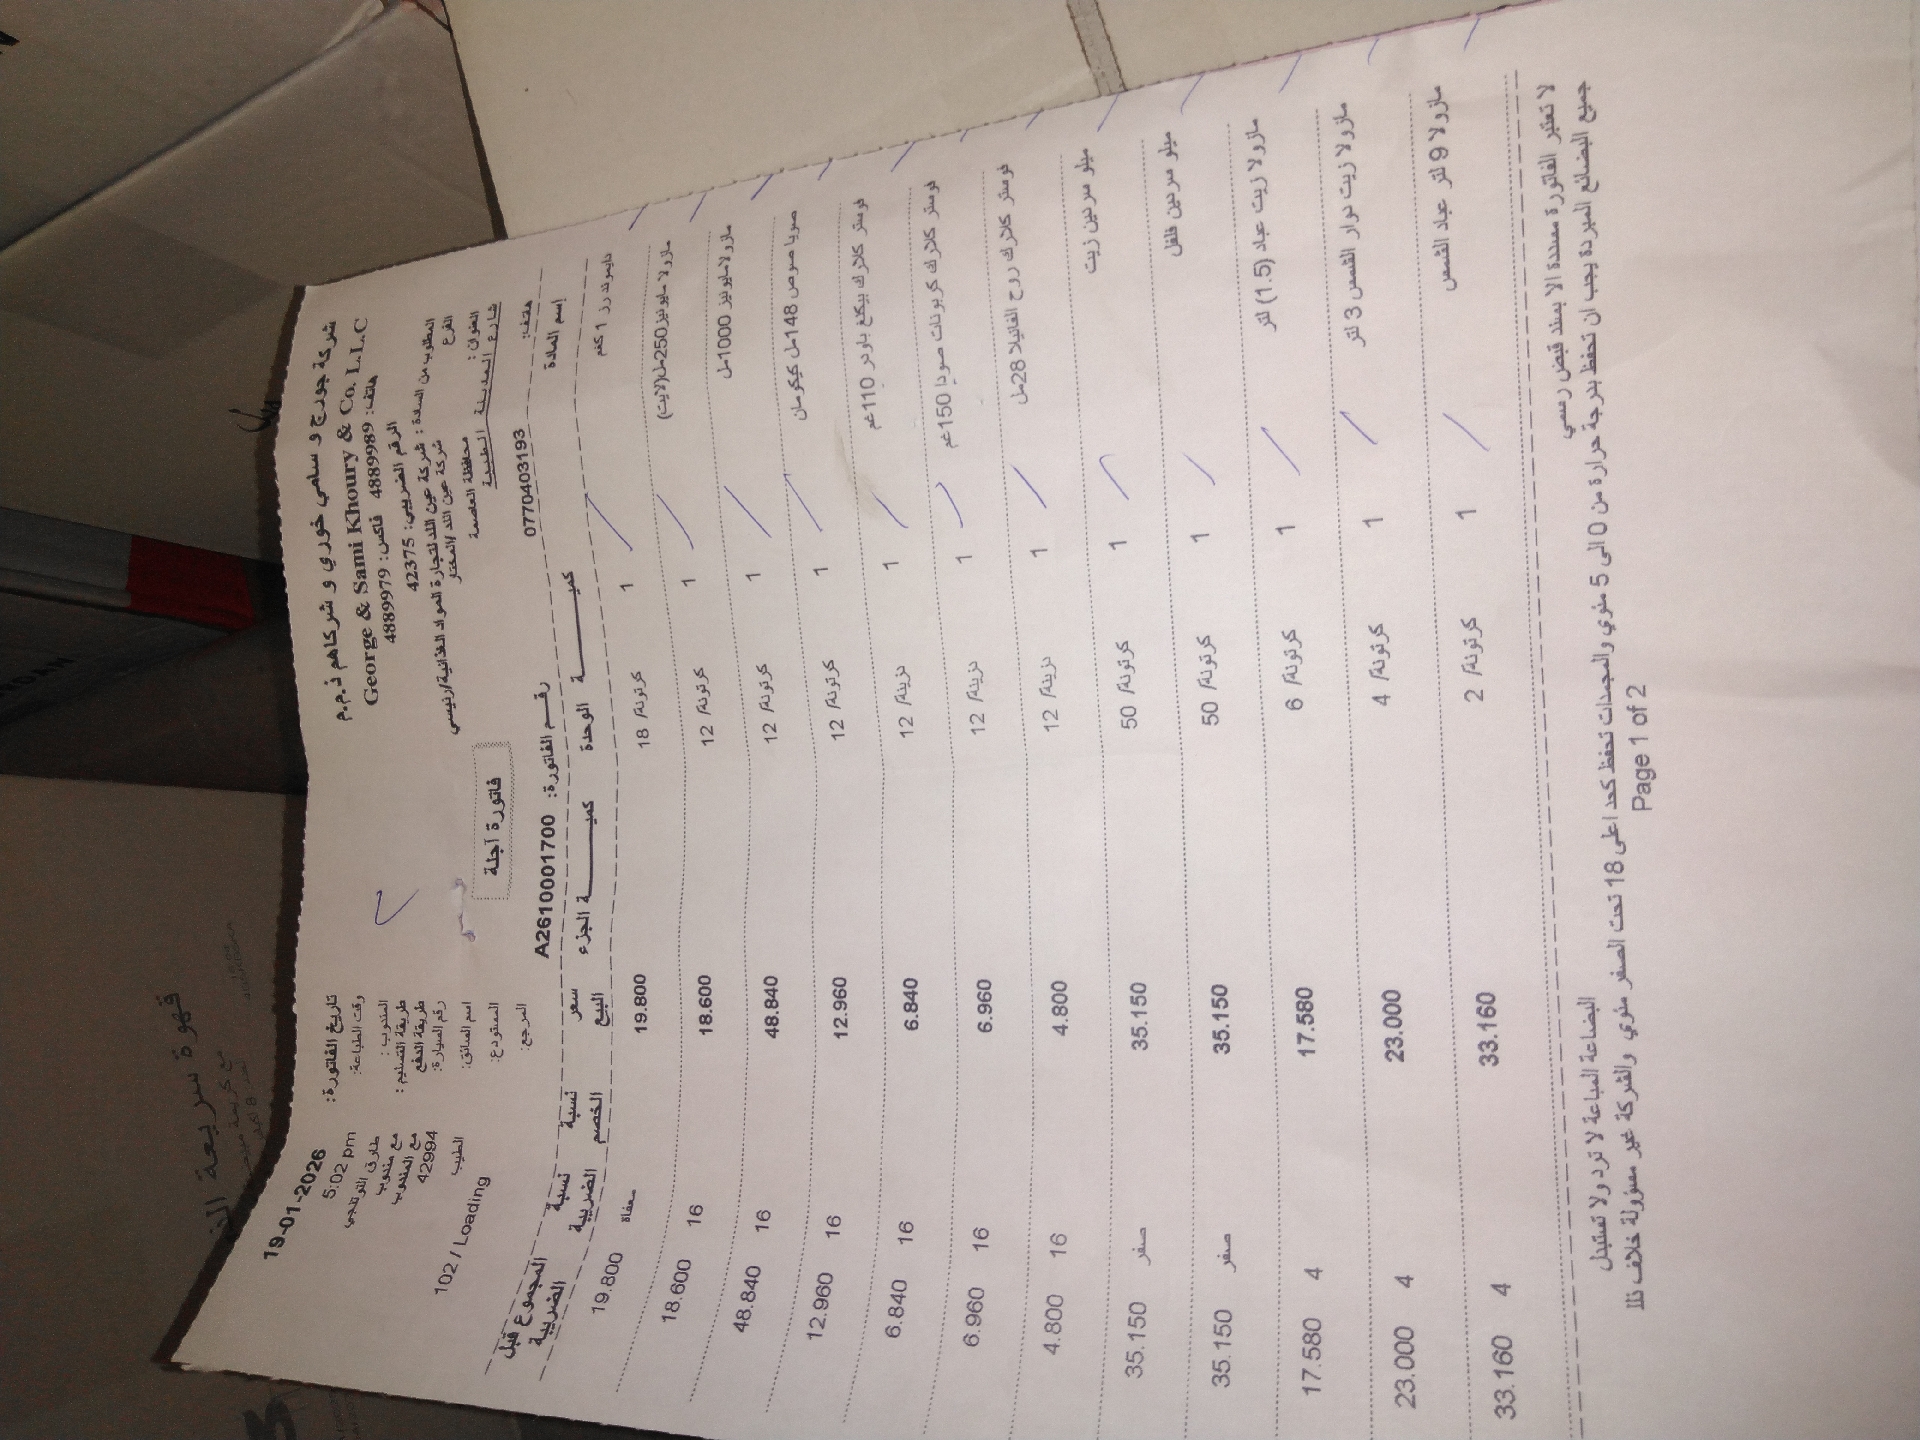 شركة جورج و سامي خوري و شركاهم ذ.م.م
George & Sami Khoury & Co. L.L.C
هاتف: 4889989 فاكس: 4889979
الرقم الضريبي: 42375
المطلوب من السادة : شركة عين اللد لتجارة المواد الغذائية/رئيسي
الفرع شركة عين اللد /المختار
العنوان : محافظة العاصمة
شارع المدينة الطبية
هاتف: 0770403193
فاتورة آجلة
تاريخ الفاتورة: 19-01-2026
وقت الطباعة: 5:02 pm
المندوب :
طريقة التسليم : مع مندوب
طريقة الدفع مع المندوب
رقم السيارة: 42994
اسم السائق: الطيب
المستودع: 102 / Loading
المرجع:
رقم الفاتورة: A2610001700
إسم المادة كمية الوحدة كمية الجزء سعر البيع نسبة الخصم نسبة الضريبة المجموع قبل الضريبة
دايموند رز 1كغم 1 كرتونة/ 18 19.800 معفاة 19.800
مازولا مايونيز250مل(لايت) 1 كرتونة/ 12 18.600 16 18.600
مازولامايونيز 1000مل 1 كرتونة/ 12 48.840 16 48.840
صويا صوص 148مل كيكومان 1 كرتونة/ 12 12.960 16 12.960
فوستر كلارك بيكنغ باودر 110غم 1 دزينة/ 12 6.840 16 6.840
فوستر كلارك كربونات صودا 150غم 1 دزينة/ 12 6.960 16 6.960
فوستر كلارك روح الفانيلا 28مل 1 دزينة/ 12 4.800 16 4.800
ميلو سردين زيت 1 كرتونة/ 50 35.150 صفر 35.150
ميلو سردين فلفل 1 كرتونة/ 50 35.150 صفر 35.150
مازولا زيت عباد (1.5) لتر 1 كرتونة/ 6 17.580 4 17.580
مازولا زيت دوار الشمس 3 لتر 1 كرتونة/ 4 23.000 4 23.000
مازولا 9 لتر عباد الشمس 1 كرتونة/ 2 33.160 4 33.160
لا تعتبر الفاتورة مسددة الا بسند قبض رسمي
البضاعة المباعة لا ترد ولا تستبدل
جميع البضائع المبردة يجب ان تحفظ بدرجة حرارة من 0 الى 5 مئوي والمجمدات تحفظ كحد اعلى 18 تحت الصفر مئوي والشركة غير مسؤولة خلاف ذلك
Page 1 of 2
قهوة سريعة